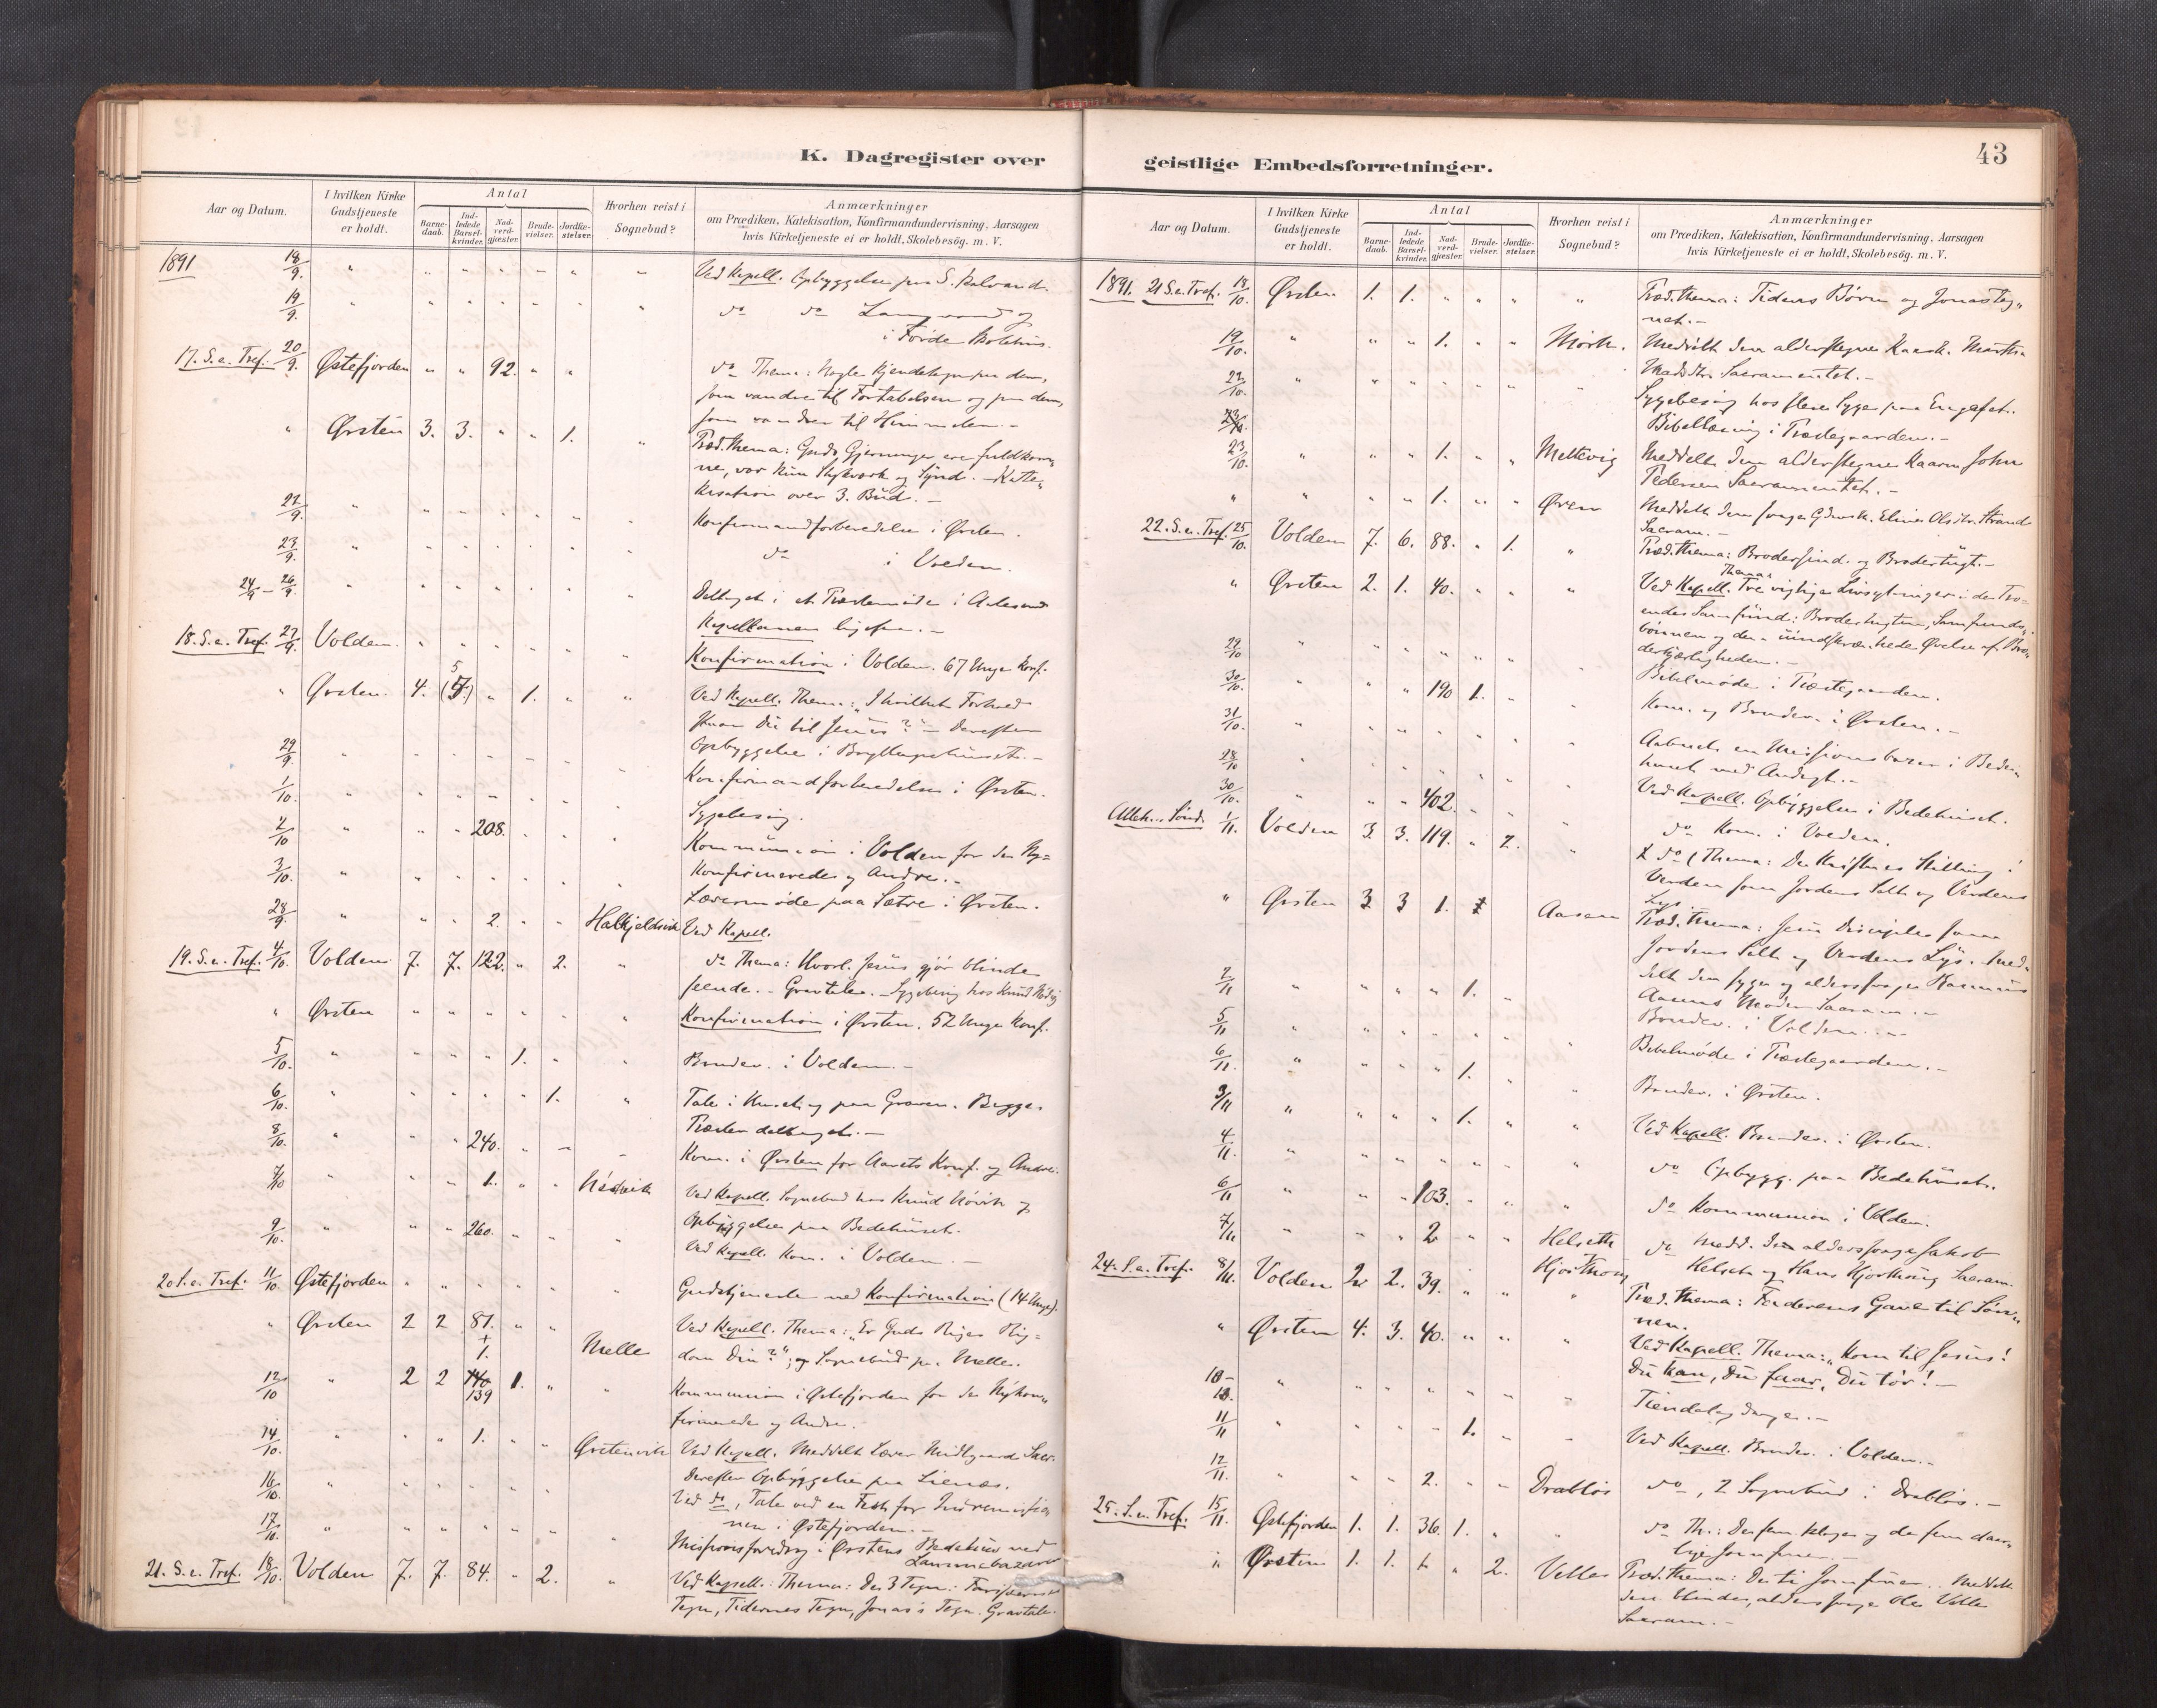 K. Dagregister over
Aar og Datum.
I hvilken Kirke Gudstjeneste er holdt.
Antal
Barne-daab.
Ind-ledede Barsel-kvinder.
Nad-verd-gjæster.
Brude-vielser.
Jordfæ-stelser.
Hvorhen reist i Sognebud?
Anmærkninger
om Prædiken, Katekisation, Konfirmandundervisning, Aarsagen
hvis Kirketjeneste ei er holdt, Skolebesög. m. V.
1891 18/9. " " " " " " " Ved Kapell. Opbyggelse paa
19/9. " " " " " " " do do
i Førde Skolehus.
17. S. e. Tref. 20/9. Østefjorden " " 92. " " do Thema: Nogle Kjendetegn paa dem,
som vandre til Fortabelsen og paa dem,
som vandrer til Himmelen. -
" Ørsten 3. 3. " " 1. " Præd. thema: Guds Gjerninger ere fuldkom-
ne, vor kun Stykverk og Synd. - Kate-
kisation over 3. Bud. -
22/9. " " " " " " " Konfirmandforberedelse i Ørsten.
23/9. " " " " " " " do i Volden.
24/9 - 26/9. " " " " " " " Deltaget i et Præstemøde i Aalesund
Kapellanen ligesaa. -
18. S. e. Tref. 27/9. Volden. " " " " " " Konfirmation i Volden. 67 Unge Konf.
" Ørsten. 4. 5 " 1. " " Ved Kapell. Thema: "I hvilket Forhold
staar Du til Jesus?" - Derefter
Opbyggelse i Bryllupshuset. -
29/9. " " " " " " " Konfirmandforberedelse i Ørsten.
1/10. " " " " " " " Sygebesøg.
2/10 " " " 208. " " " Kommunion i Volden for de Ny-
Konfirmerede og Andre. -
3/10. " " " " " " " Lærermøde paa Sætre i Ørsten.
28/9. " " " 2. " " Halkjeldsvik Ved Kapell.
19. S. e. Tref. 4/10. Volden 7. 7. 122. " 2. " do Thema: Hvorl. Jesus gjør blinde
seende. - Gravtale. - Sygebesøg hos Knud
" Ørsten " " " " " " Konfirmation i Ørsten. 52 Unge Konf.
5/10. " " " " 1. " " Brudev. i Volden. -
6/10. " " " " " 1. " Tale i Huset og paa Graven. Begge
Præster deltaget. -
8/10. " " " 240. " " " Kom. i Ørsten for Aarets Konf. og Andre.
7/10 " " " 1. " " Ved Kapell. Sognebud hos Knud og
Opbyggelse paa Bedehuset.
9/10. " " " 260. " " " Ved Kapell. Kom. i Volden. -
20 S. e. Tref. 11/10. Østefjorden " " " " " " Gudstjeneste med Konfirmation (14 Unge).
" Ørsten 2 2 87. + 1. " " Melle Ved Kapell. Thema: "Er Guds Riges Rig-
dom Din?", og Sognebud paa Melle.
12/10 " 2 2 140 139 1. " " Kommunion i Østefjorden for de Nykon-
firmerede og Andre. -
14/10. " " " 1. " " Ørstenvik Ved Kapell. Meddelt Lærer Midtgaard Sacr.
Derefter Opbyggelse paa
16/10. " " " " " " " Ved do, Tale ved en Fest for Indremissio-
nen i Østefjorden. -
17/10. " " " " " " " Missionsforedrag i Ørstens Bedehus ved
21. S. e. Tref. 18/10. Volden 7. 7. 84. " 2. " Ved Kapell.: Thema: De 3 Tegn:
Tegn, Tidernes Tegn, Jonas's Tegn. Gravtale.
geistlige Embedsforretninger.
43
Aar og Datum.
I hvilken Kirke Gudstjeneste er holdt.
Antal
Barne-daab.
Ind-ledede Barsel-kvinder.
Nad-verd-gjæster.
Brude-vielser.
Jordfæ-stelser.
Hvorhen reist i Sognebud?
Anmærkninger
om Prædiken, Katekisation, Konfirmandundervisning, Aarsagen
hvis Kirketjeneste ei er holdt, Skolebesög. m. V.
1891. 21 S. e. Tref. 18/10. Ørsten 1. 1. " " " " Præd. thema: Tidens Børn og Jonasteg-
net. -
19/10. " " " 1. " " Mork. Meddelt den alderstegne Martha
Madsdtr. Sacramentet. -
22/10. " " " " " " " Sygebesøg hos flere Syge paa
Bibellæsning i Præstegaarden. -
23/10. " " " 1. " " Meltevig Meddelt den alderstegne John
Pedersen Sacramentet. -
" " " " 1. " " Ørsen Meddelt den svage Eline Olsdtr. Strand
Sacram. -
22. S. e. Tref. 25/10. Volden 7. 6. 88. " 1. " Præd. thema: Brodersind og Brodertugt. -
" Ørsten 2. 1. 40. " " " Ved Kapell. Thema: Tre vigtige Livsytringer i de Tro-
endes Samfund: Brodertugten, Samfunds-
bønnen og den uindskrænkede Øvelse af Bro-
derkjærligheden. -
29/10 " " " " " " " Bibelmøde i Præstegaarden.
30/10. " " " 190 1. " " Kom. og Brudev. i Ørsten. -
31/10. " " " " " " " Aabnet en Missionsbasar i Bede-
huset med Andagt. -
28/10 " " " " " " " Ved Kapell. Opbyggelse i Bedehuset.
30/10. " " " 402. " " " do Kom. i Volden.
Alleh. Sønd. 1/11. Volden 3. 3. 119. " 2. " do (Thema: De Kristnes Stilling i
Verden som Jordens Salt og Verdens
Lys.
" Ørsten 3 3 1. Aasen Præd. thema: Jesu Disciple som
Jordens Salt og Verdens Lys. Med-
delt den syge og aldersvage Rasmus
Aasens Moder Sacram. -
2/11 " " " " 1. " Brudev. i Volden. -
5/11 " " " " " " " Bibelmøde i Præstegaarden. -
6/11. " " " " 1. " " Brudev. i Ørsten.
3/11 " " " " 1. " " Ved Kapell. Brudev. i Ørsten.
4/11. " " " " " " " do Opbygg. paa Bedehuset.
6/11 " " " 103. " " " do Kommunion i Volden.
7/11 " " " 2 " " Helseth do Medd. den aldersvage Jakob
Hjorthoug Helset og Hans Hjorthoug Sacram.
24. S. e. Tref. 8/11. Volden 2 2. 39. " " " Præd. thema: Faderens Gave til Søn-
nen.
" Ørsten 4. 3. 40. " " " Ved Kapell. Thema: "Kom til Jesus!
Du kan, Du faar, Du tør! -
10- " " " " " " "
13. Tiendelagdinger. -
11/11 " " " " 1. " " Ved Kapell. Brudev. i Volden. -
12/11. " " " 2. " " Drabløs do, 2 Sognebud i Drabløs. -
25. S. e. Tref. 15/11. Østefjorden 1. 1. 36. 1. " " do Th.: De fem kloge og de fem daar-
lige Jomfruer. -
" Ørsten 1. 1. 1. " 2. Velle Præd. thema: De ti Jomfruer. Meddelt
den blinde, aldersvage Ole Velle
Sacram. -